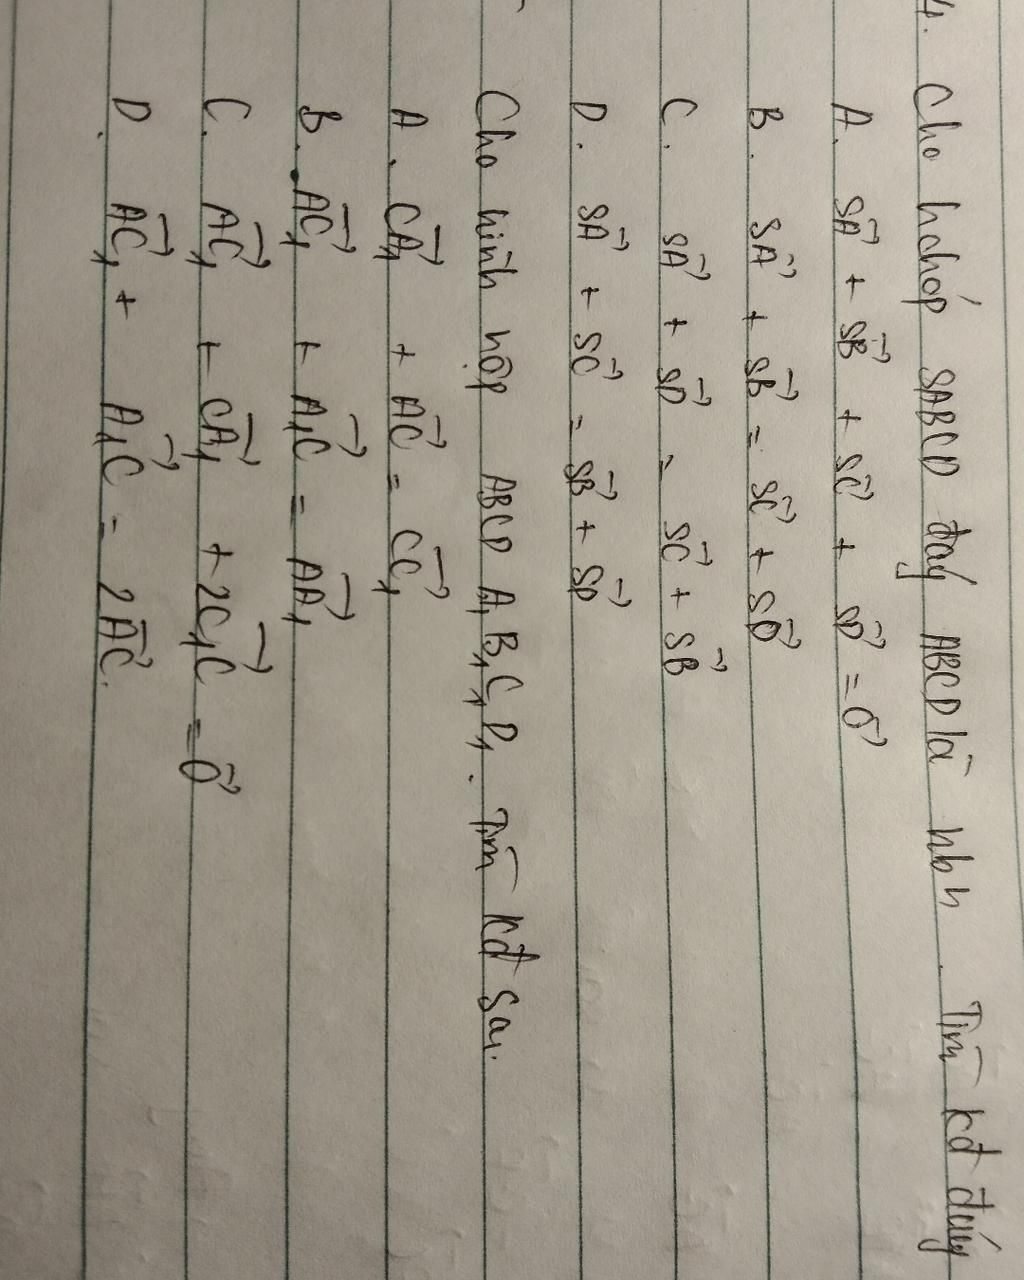 4. Cho hchóp SABCD đáy ABCD là hbh. Tìm kđ đúng
A. SA→ + SB→ + SC→ + SD→ = 0→
B. SA→ + SB→ = SC→ + SD→
C. SA→ + SD→ = SC→ + SB→
D. SA→ + SC→ = SB→ + SD→
Cho hình hộp ABCD A₁B₁C₁D₁. Tìm kđ sai.
A. CA₁→ + AC→ = CC₁→
B. AC₁→ + A₁C→ = AA₁→
C. AC₁→ + CA₁→ + 2C₁C→ = 0→
D. AC₁→ + A₁C→ = 2AC→.